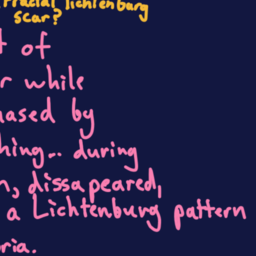 facial lichtenburg
scar?
t of
r while
ased by
hing.. during
n, dissapeared,
a Lichtenburg pattern
ria.